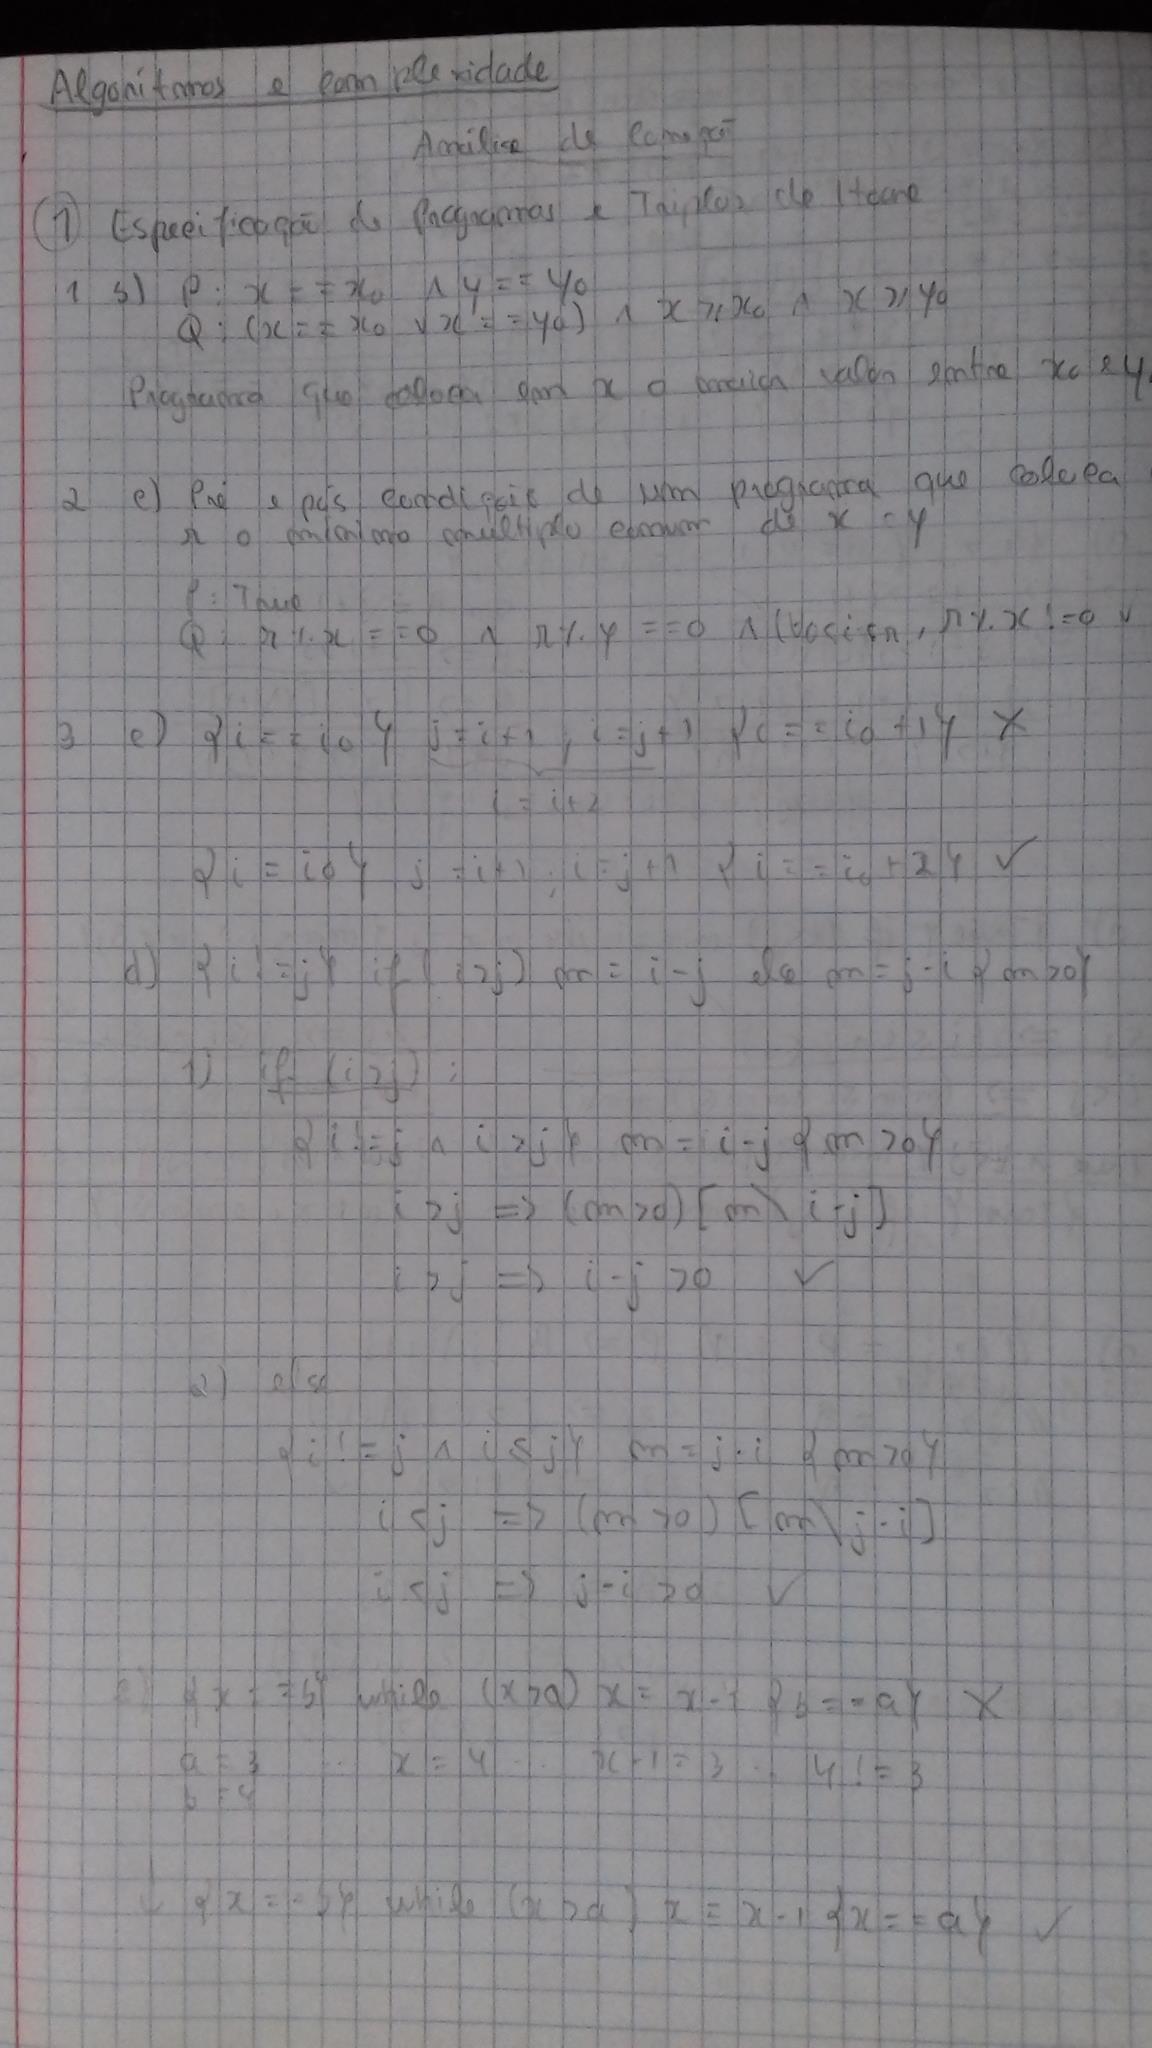 Algoritmos e complexidade
Análise de Correção
1 Especificação de Programas e Triplos de Hoare
1 b) P: x == x0 ∧ y == y0
Q: (x == x0 ∨ x == y0) ∧ x >= x0 ∧ x >= y0
Programa que coloca em x o maior valor entre x0 e y
2 c) Pré e pós condições de um programa que coloca
r o mínimo múltiplo comum de x e y
P: True
Q: r % x == 0 ∧ r % y == 0 ∧ (∀0<i<r, r % x != 0 ∨
3 c) {i == i0} j = i+1; i = j+1 {i == i0 + 1} X
i = i+2
{i = i0} j = i+1; i = j+1 {i == i0 + 2} ✓
d) {i != j} if (i > j) m = i - j else m = j - i {m > 0}
1) if (i > j):
{i != j ∧ i > j} m = i - j {m > 0}
i > j => (m > 0) [m \ i - j]
i > j => i - j > 0 ✓
2) else
{i != j ∧ i ≤ j} m = j - i {m > 0}
i < j => (m > 0) [m \ j - i]
i < j => j - i > 0 ✓
e) {x == b} while (x > a) x = x - 1 {b == a} X
a = 3 .. x = 4 .. x - 1 = 3 .. 4 != 3
b = 4
{x == b} while (x > a) x = x - 1 {x == a} ✓